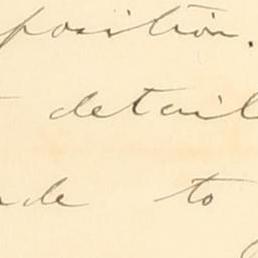 position.
detail
to